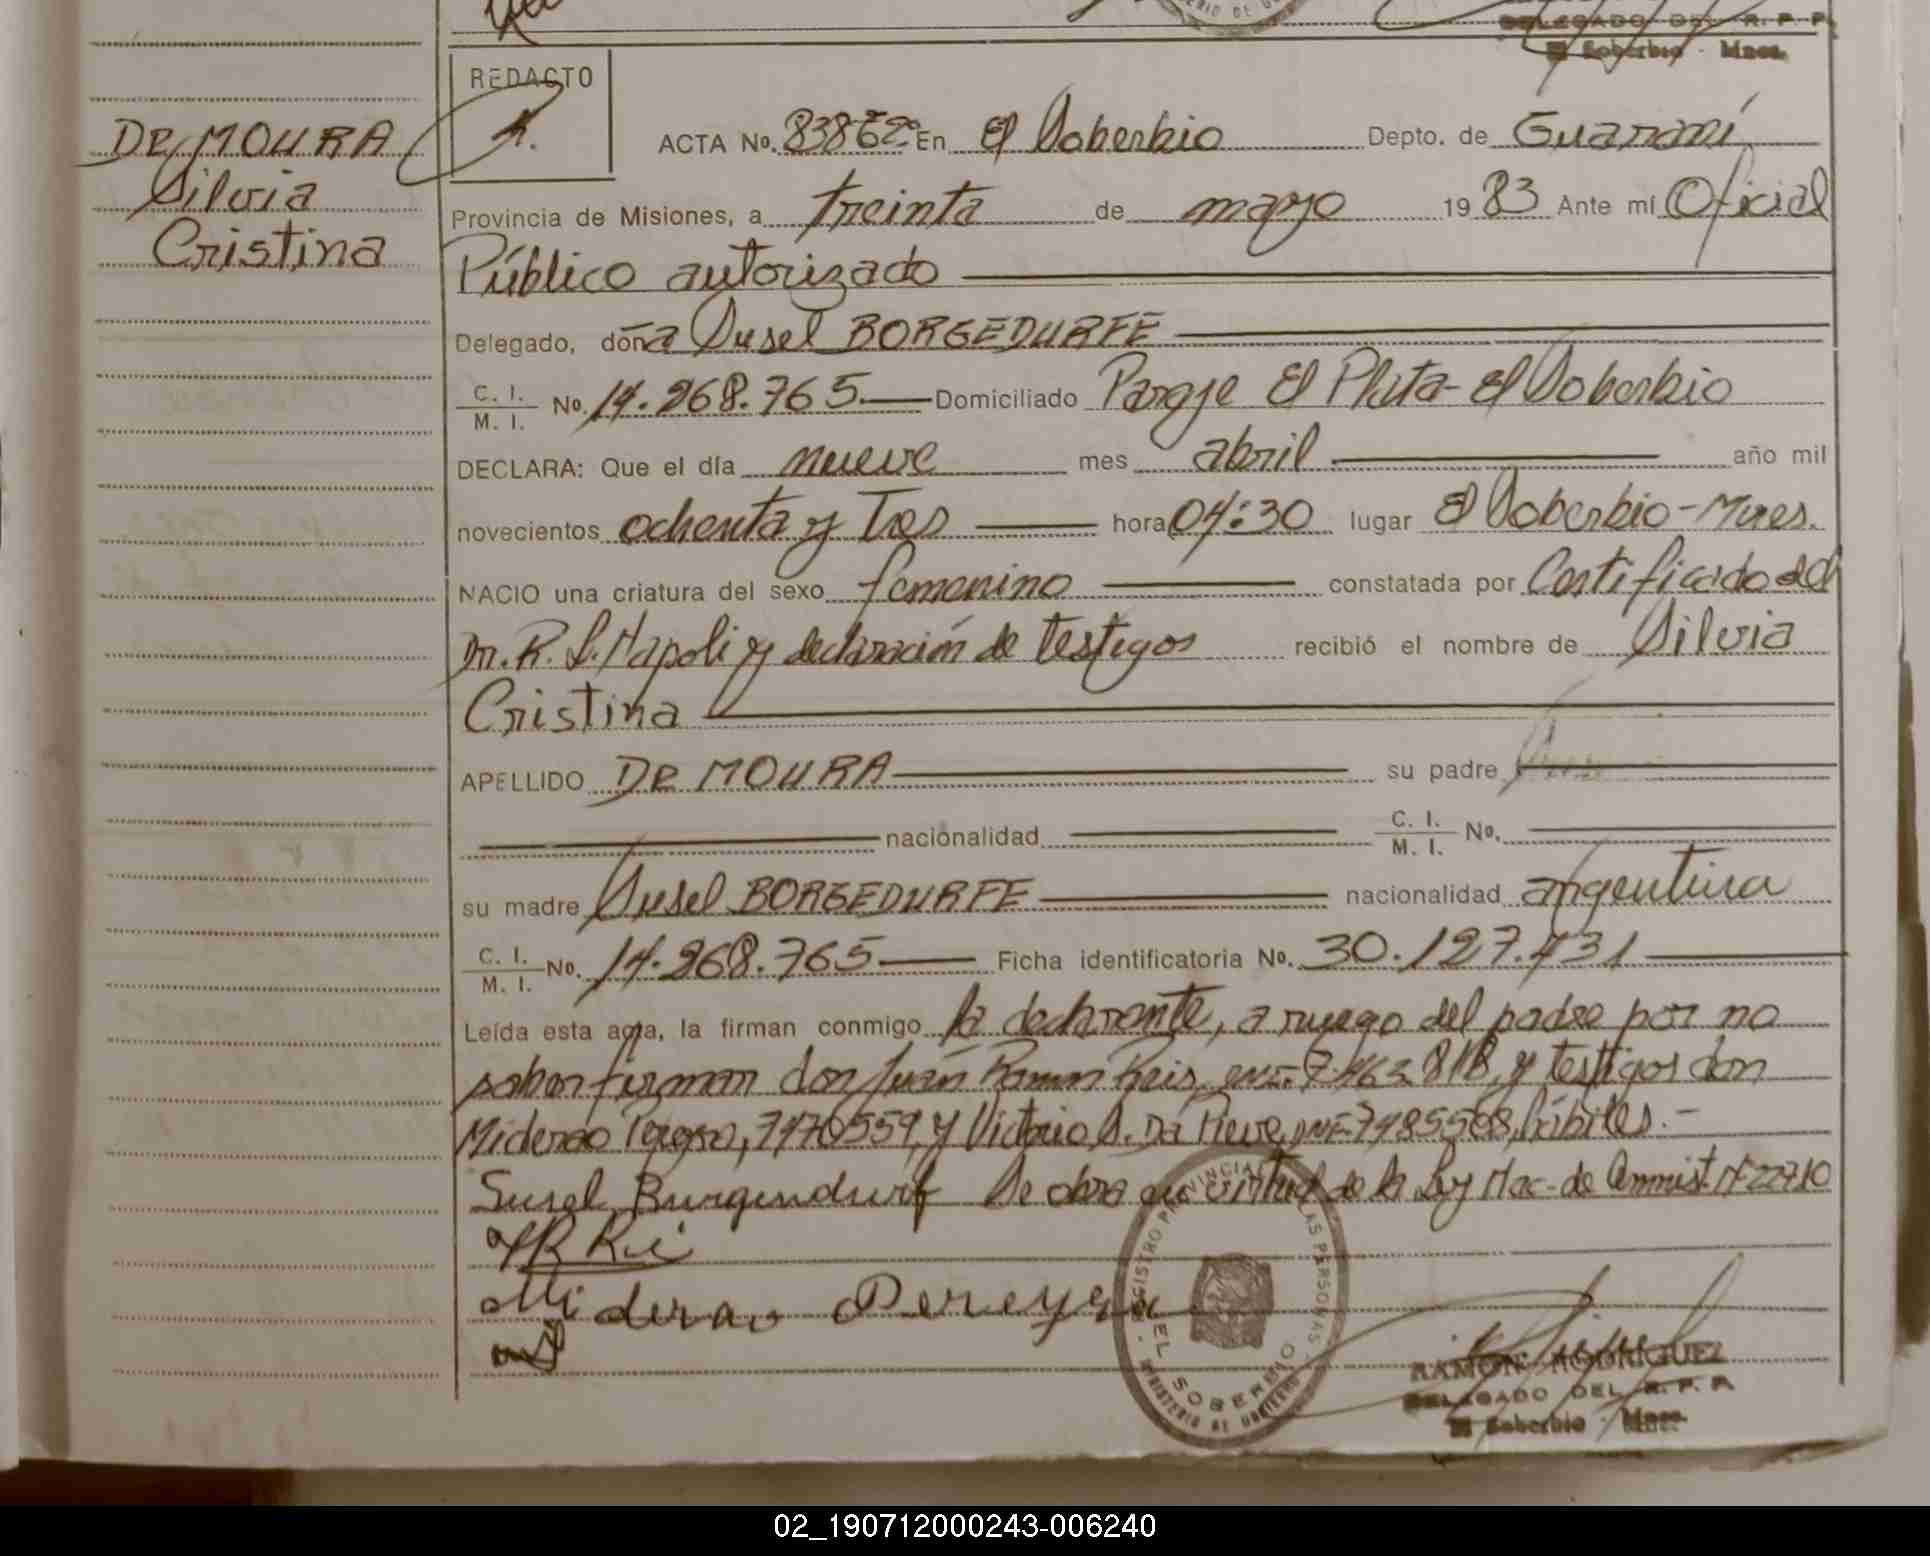 DELEGADO DEL R. P. P.
El Soberbio - Mnes.
REDACTO
DE MOURA
Silvia
Cristina
ACTA No. En El Soberbio Depto. de Guaraní
Provincia de Misiones, a treinta de mayo 1983 Ante mí Oficial
Público autorizado
Delegado, doña Susel BORGEDURFE
C. I. / M. I. No. 14.268.765 Domiciliado Paraje El Plata - El Soberbio
DECLARA: Que el día nueve mes abril año mil
novecientos ochenta y Tres hora 04:30 lugar El Soberbio - Mnes.
NACIO una criatura del sexo femenino constatada por Certificado del
Dr. R. L. Napoli y declaración de Testigos recibió el nombre de Silvia
Cristina
APELLIDO DE MOURA su padre
nacionalidad C. I. / M. I. No.
su madre Susel BORGEDURFE nacionalidad argentina
C. I. / M. I. No. 14.268.765 Ficha identificatoria No. 30.127.431
Leída esta acta, la firman conmigo la declarante, a ruego del padre por no
saber firmar don Juán Ramon Reis, y testigos don
7470559, y Victorio hábiles.-
Susel Burgendurf Se obra en virtud de la Ley Nac. de Amnist. Nº 22710
Miderao Pereyra
REGISTRO PROVINCIAL DE LAS PERSONAS
EL SOBERBIO
MINISTERIO DE GOBIERNO
RAMON RODRIGUEZ
DELEGADO DEL R. P. P.
El Soberbio - Mnes.
02_190712000243-006240